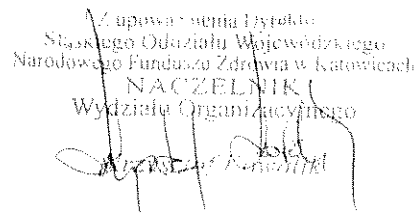 Z upoważnienia Dyrektora
Śląskiego Oddziału Wojewódzkiego
Narodowego Funduszu Zdrowia w Katowicach
NACZELNIK
Wydziału Organizacyjnego
Krzysztof